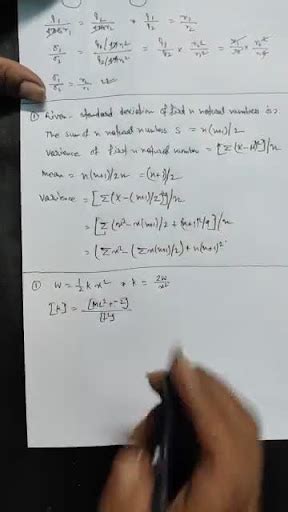 q₁/4πε₀r₁ = q₂/4πε₀r₂ → q₁/q₂ = r₁/r₂
σ₁/σ₂ = q₁/4πr₁²/q₂/4πr₂² = q₁/q₂ × r₂²/r₁² = r₁/r₂ × r₂²/r₁²
σ₁/σ₂ = r₂/r₁
① Given - standard deviation of first n natural numbers is 2.
The sum of n natural numbers S = n(n+1)/2
Varience of first n natural number = [Σ(x-M)²]/n
mean = n(n+1)/2n = (n+1)/2
varience = [Σ(x-(n+1)/2)²]/n
= [Σ(x² - x(n+1)/2 + (n+1)²/4]/n
= (Σx² - (Σx(n+1)/2) + n(n+1)²
① W = ½ k x² → k = 2W/x²
[k] = [ML²T⁻²]/[L²]